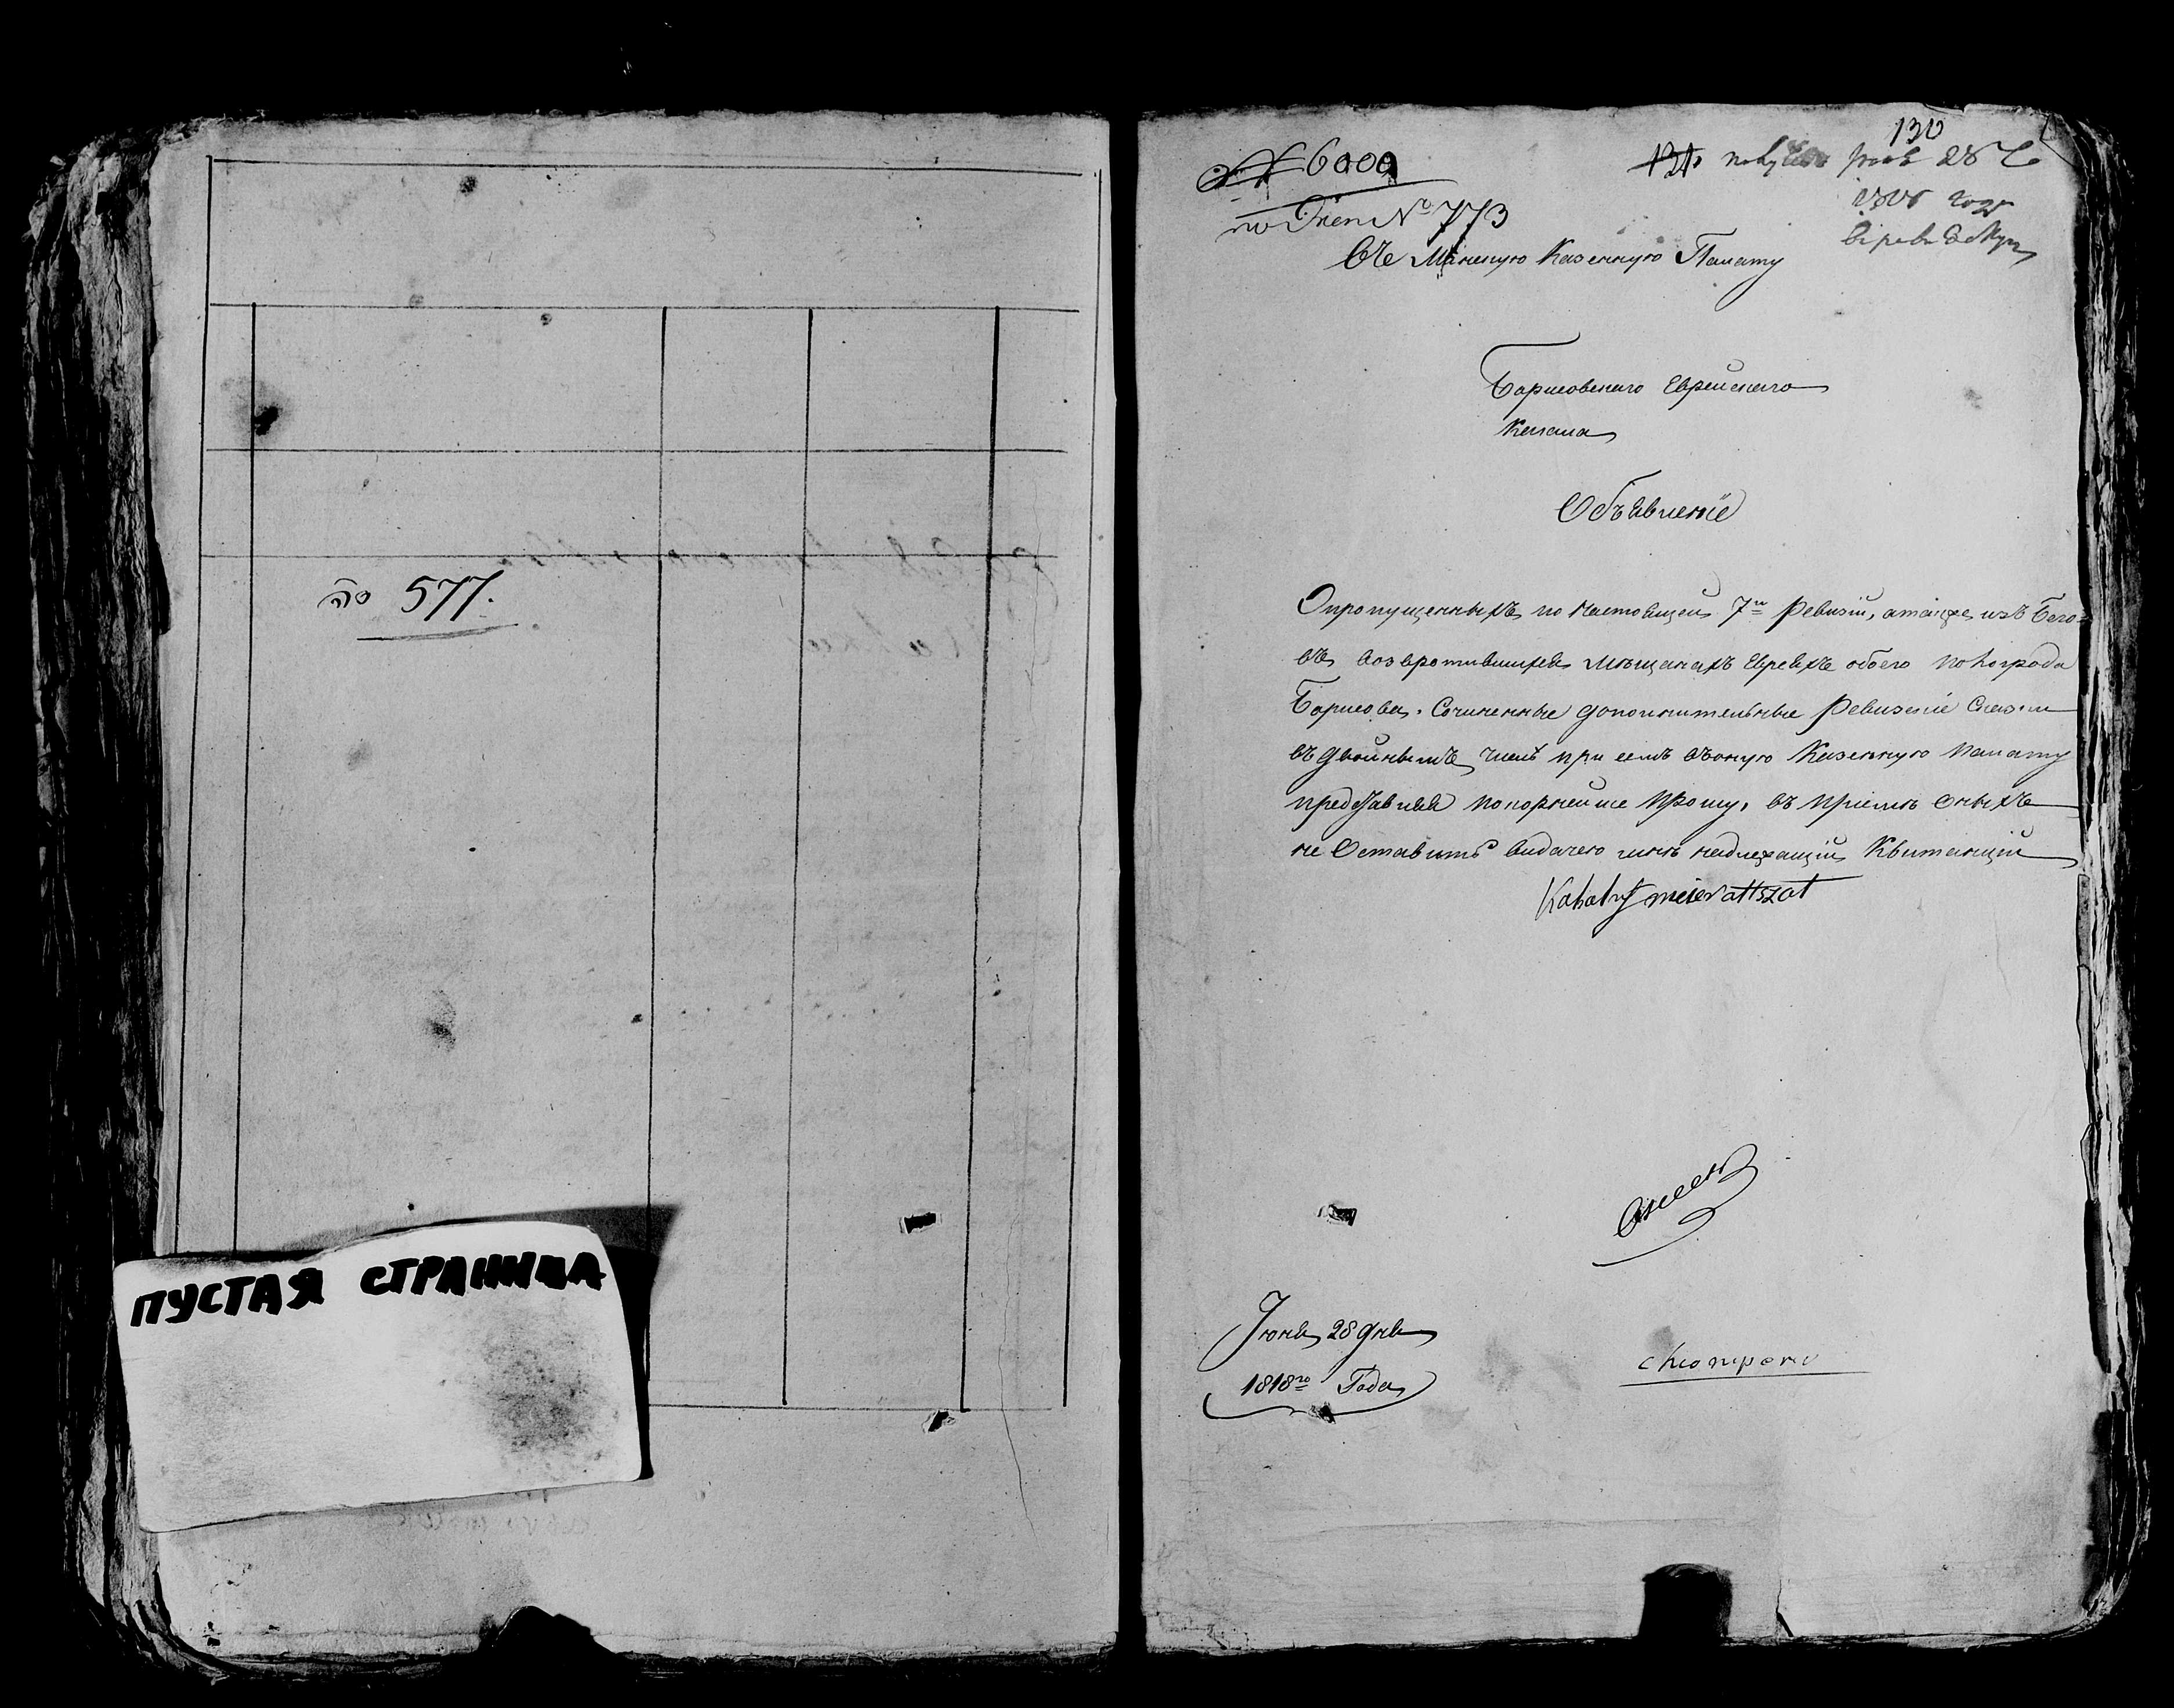 по 577.
ПУСТАЯ СТРАНИЦА
130
№ 6000
131
по № 773
Въ Минскую Казенную Палату
Борисовскаго Еврейскаго
Кагала
Объявленіе
О пропущенныхъ по настоящей 7й Ревизіи, а также изъ Бего=
въ возвратившихся мещанахъ Евреяхъ обоего пола города
Борисова. Сочиненные дополнительные Ревизскіе Сказки
въ двойнымъ числе при семъ въ оную Казенную палату
представляя покорнейше прошу, въ приеме оныхъ
не Оставить видачею мне надлежащій Квитанціи
Kahalny meier
Июня 28 дня
1818го Года